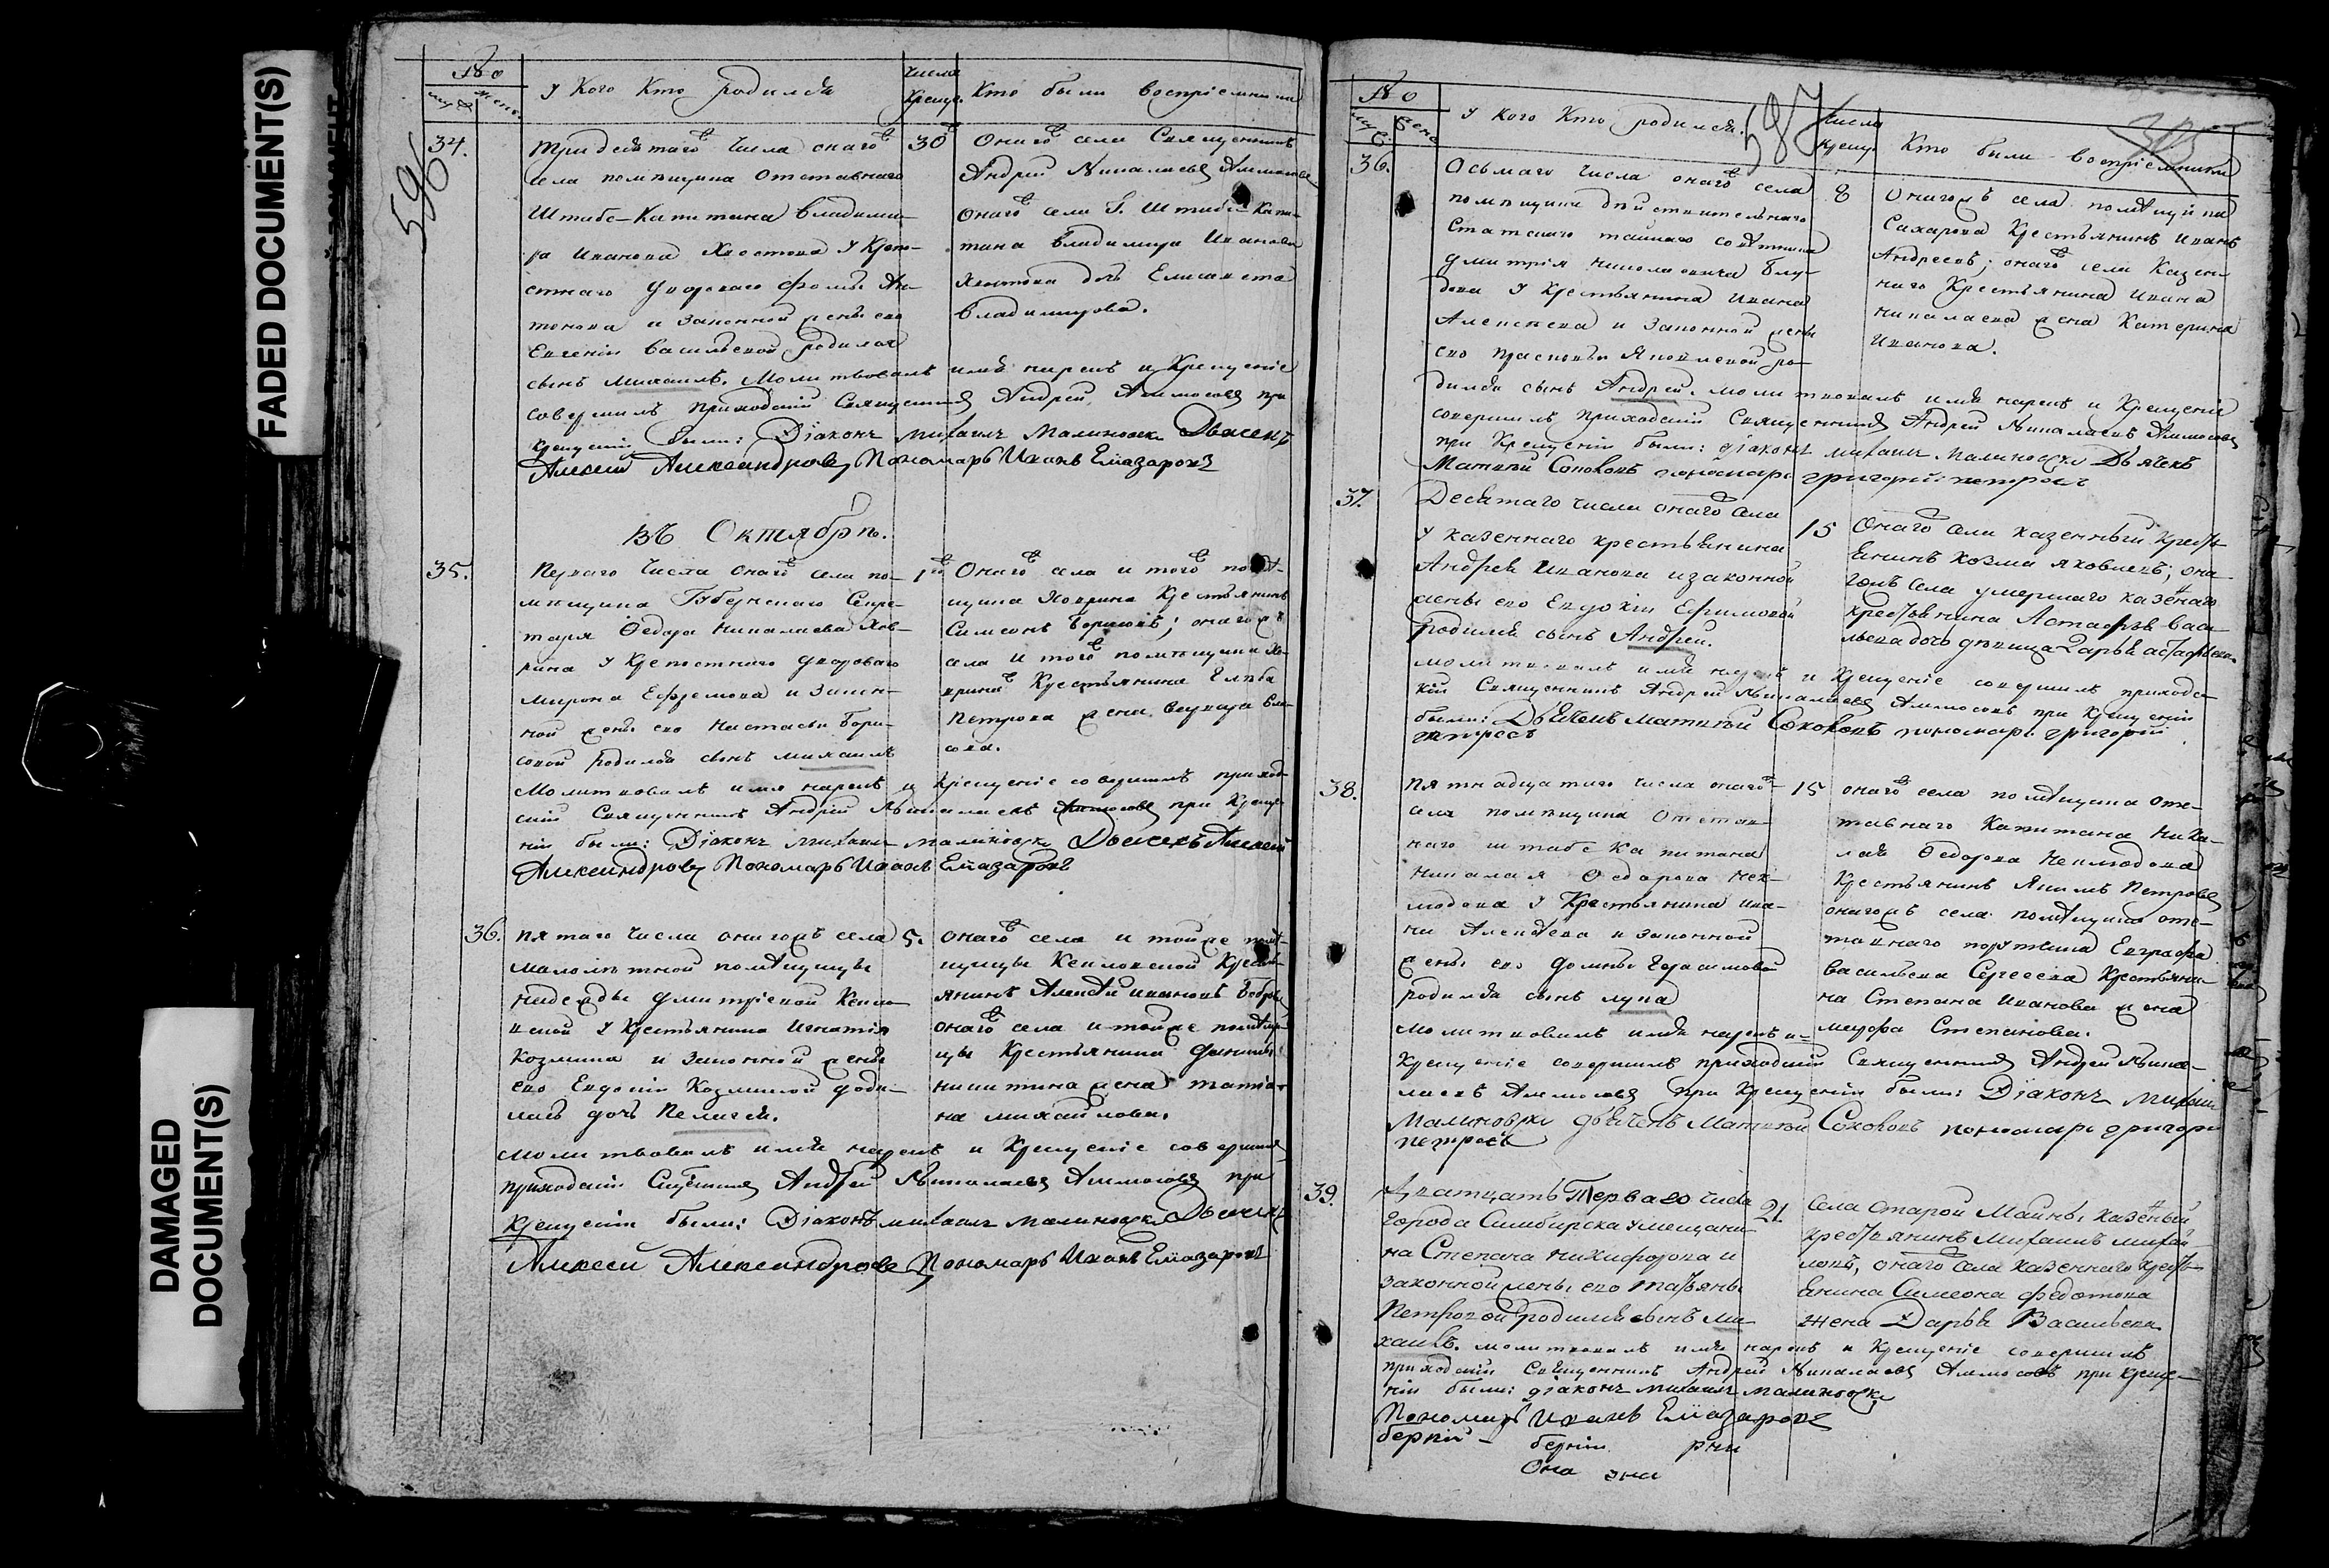 FADED DOCUMENT(S)
DAMAGED
DOCUMENT(S)
596
№
муж. жен.
У Кого Кто родился
числа
Крещ.
Кто были воспріемники
34.
Тридесятаго числа онагожъ
села помѣщика Отставнаго
Штабс-Капитана Владими-
ра Иванова Хвостова у Крѣпо-
стнаго Двороваго Фомы Ан-
тонова и Законной жены его
Евгеніи Васильевой родился
сынъ Михаилъ. Молитвовалъ имя нарекъ и Крещеніе
совершилъ приходскій Священникъ Андрей Аммосовъ при
крещеніи были: Діаконъ Михаилъ Малиновскій Дьячекъ
Алексѣй Александровъ Пономарь Иванъ Елїазаровъ
30
Онагожъ села Священникъ
Андрей Николаевъ Аммосовъ
Онагожъ села Г. Штабс-Капи-
тана Владимира Иванова
Хвостова дочь Елисавета
Владимирова.
Въ Октябрѣ.
35.
Перваго числа Онагожъ села по-
мѣщика Губернскаго Секре-
таря Ѳедора Николаева Хов-
рина у Крепостнаго двороваго
Мирона Ефремова и Закон-
ной жены его Настасьи Бори-
совой родился сынъ Михаилъ
Молитвовалъ имя нарекъ и Крещеніе совершилъ приход-
скій Священникъ Андрей Николаевъ Аммосовъ при Креще-
ніи были: Діаконъ Михаилъ Малиновскій Дьячекъ Алексѣй
Александровъ Пономарь Иванъ Елїазаровъ
1
Онагожъ села и тогожъ помѣ-
щика Ховрина Крестьянинъ
Симеонъ Борисовъ; онагожъ
села и тогожъ помѣщика Хо-
врина Крестьянина Глѣба
Петрова жена Вла-
сова.
36.
Пятаго числа онагожъ села
малолѣтной помѣщицы
Надежды Дмитріевой
у Крестьянина Игнатія
Козмина и Законной жены
его Евдокіи Козминой роди-
лась дочь Пелагея.
Молитвовалъ имя нарекъ и Крещеніе совершилъ
приходскій Священникъ Андрей Николаевъ Аммосовъ при
крещеніи были: Діаконъ Михаилъ Малиновскій Дьячекъ
Алексѣй Александровъ Пономарь Иванъ Елїазаровъ
5.
Онагожъ села и тойже помѣ-
щицы Крестья-
янинъ Алексѣй Ивановъ
онагожъ села и тойже помѣщи-
цы Крестьянина Данилы
Никитина жена Татья-
на Михайлова.
587
№
муж. жен.
У Кого Кто родился.
Числа
Крещ.
Кто были воспріемники
36.
Осьмаго числа онагожъ села
помѣщика дѣйствительнаго
Статскаго тайнаго совѣтника
Дмитрія Николаевича Блу-
дова у Крестьянина Ивана
Алексѣева и Законной жены
его Прасковьи Яковлевой ро-
дился сынъ Андрей. молитвовалъ имя нарекъ и Крещеніе
совершилъ приходскій Священникъ Андрей Николаевъ Аммосовъ
при Крещеніи были: діаконъ Михаилъ Малиновскій Дьячекъ
Матвей Соколовъ пономарь Григорій Петровъ
8
Онагожъ села помѣщика
Сахарова Крестьянинъ Иванъ
Андреевъ; онагожъ села Казен-
наго Крестьянина Ивана
Николаева жена Катерина
Иванова.
37.
Десятаго числа онагожъ села
у казеннаго крестьянина
Андрея Иванова и законной
жены его Евдокіи Ефимовой
родился сынъ Андрей.
молитвовалъ имя нарекъ и Крещеніе совершилъ приход-
скій Священникъ Андрей Николаевъ Аммосовъ при Крещеніи
были: Дьячекъ Матвей Соколовъ пономарь Григорій
Петровъ
15
Онагожъ села казенный крестья-
янинъ Козма Яковлевъ; она-
гожъ села умершаго казеннаго
крестьянина Астафья Васи-
льева дочь девица Дарья Астафьева.
38.
Пятнадцатаго числа онагожъ
села помѣщика Отстав-
наго штабс Капитана
Николая Ѳедорова Нек-
людова у Крестьянина Ива-
на Алексѣева и законной
жены его Домны Герасимовой
родился сынъ Лука
молитвовалъ имя нарекъ и
Крещеніе совершилъ приходскій Священникъ Андрей Нико-
лаевъ Аммосовъ при Крещеніи были: Діаконъ Михаилъ
Малиновскій дьячекъ Матвей Соколовъ пономарь Григорій
Петровъ
15
онагожъ села помѣщика отс-
тавнаго Капитана Нико-
лая Ѳедорова Неклюдова
Крестьянинъ Якимъ Петровъ
онагожъ села помѣщика отс-
тавнаго порутчика Евграфа
Васильева Сергеева Крестьяни-
на Степана Иванова жена
Марфа Степанова.
39.
Дватцать Перваго числа
города Симбирска у мещани-
на Степана Никифорова и
законной жены его Татьяны
Петровой родился сынъ Ми-
хаилъ. молитвовалъ имя нарекъ и Крещеніе совершилъ
приходскій Священникъ Андрей Николаевъ Аммосовъ при Креще-
ніи были: діаконъ Михаилъ Малиновскій
Пономарь Иванъ Елїазаровъ
21
Села Старой Майны казенный
крестьянинъ Михаилъ Михай-
ловъ, онагожъ села казеннаго крестья-
янина Симеона Федотова
жена Дарья Васильева